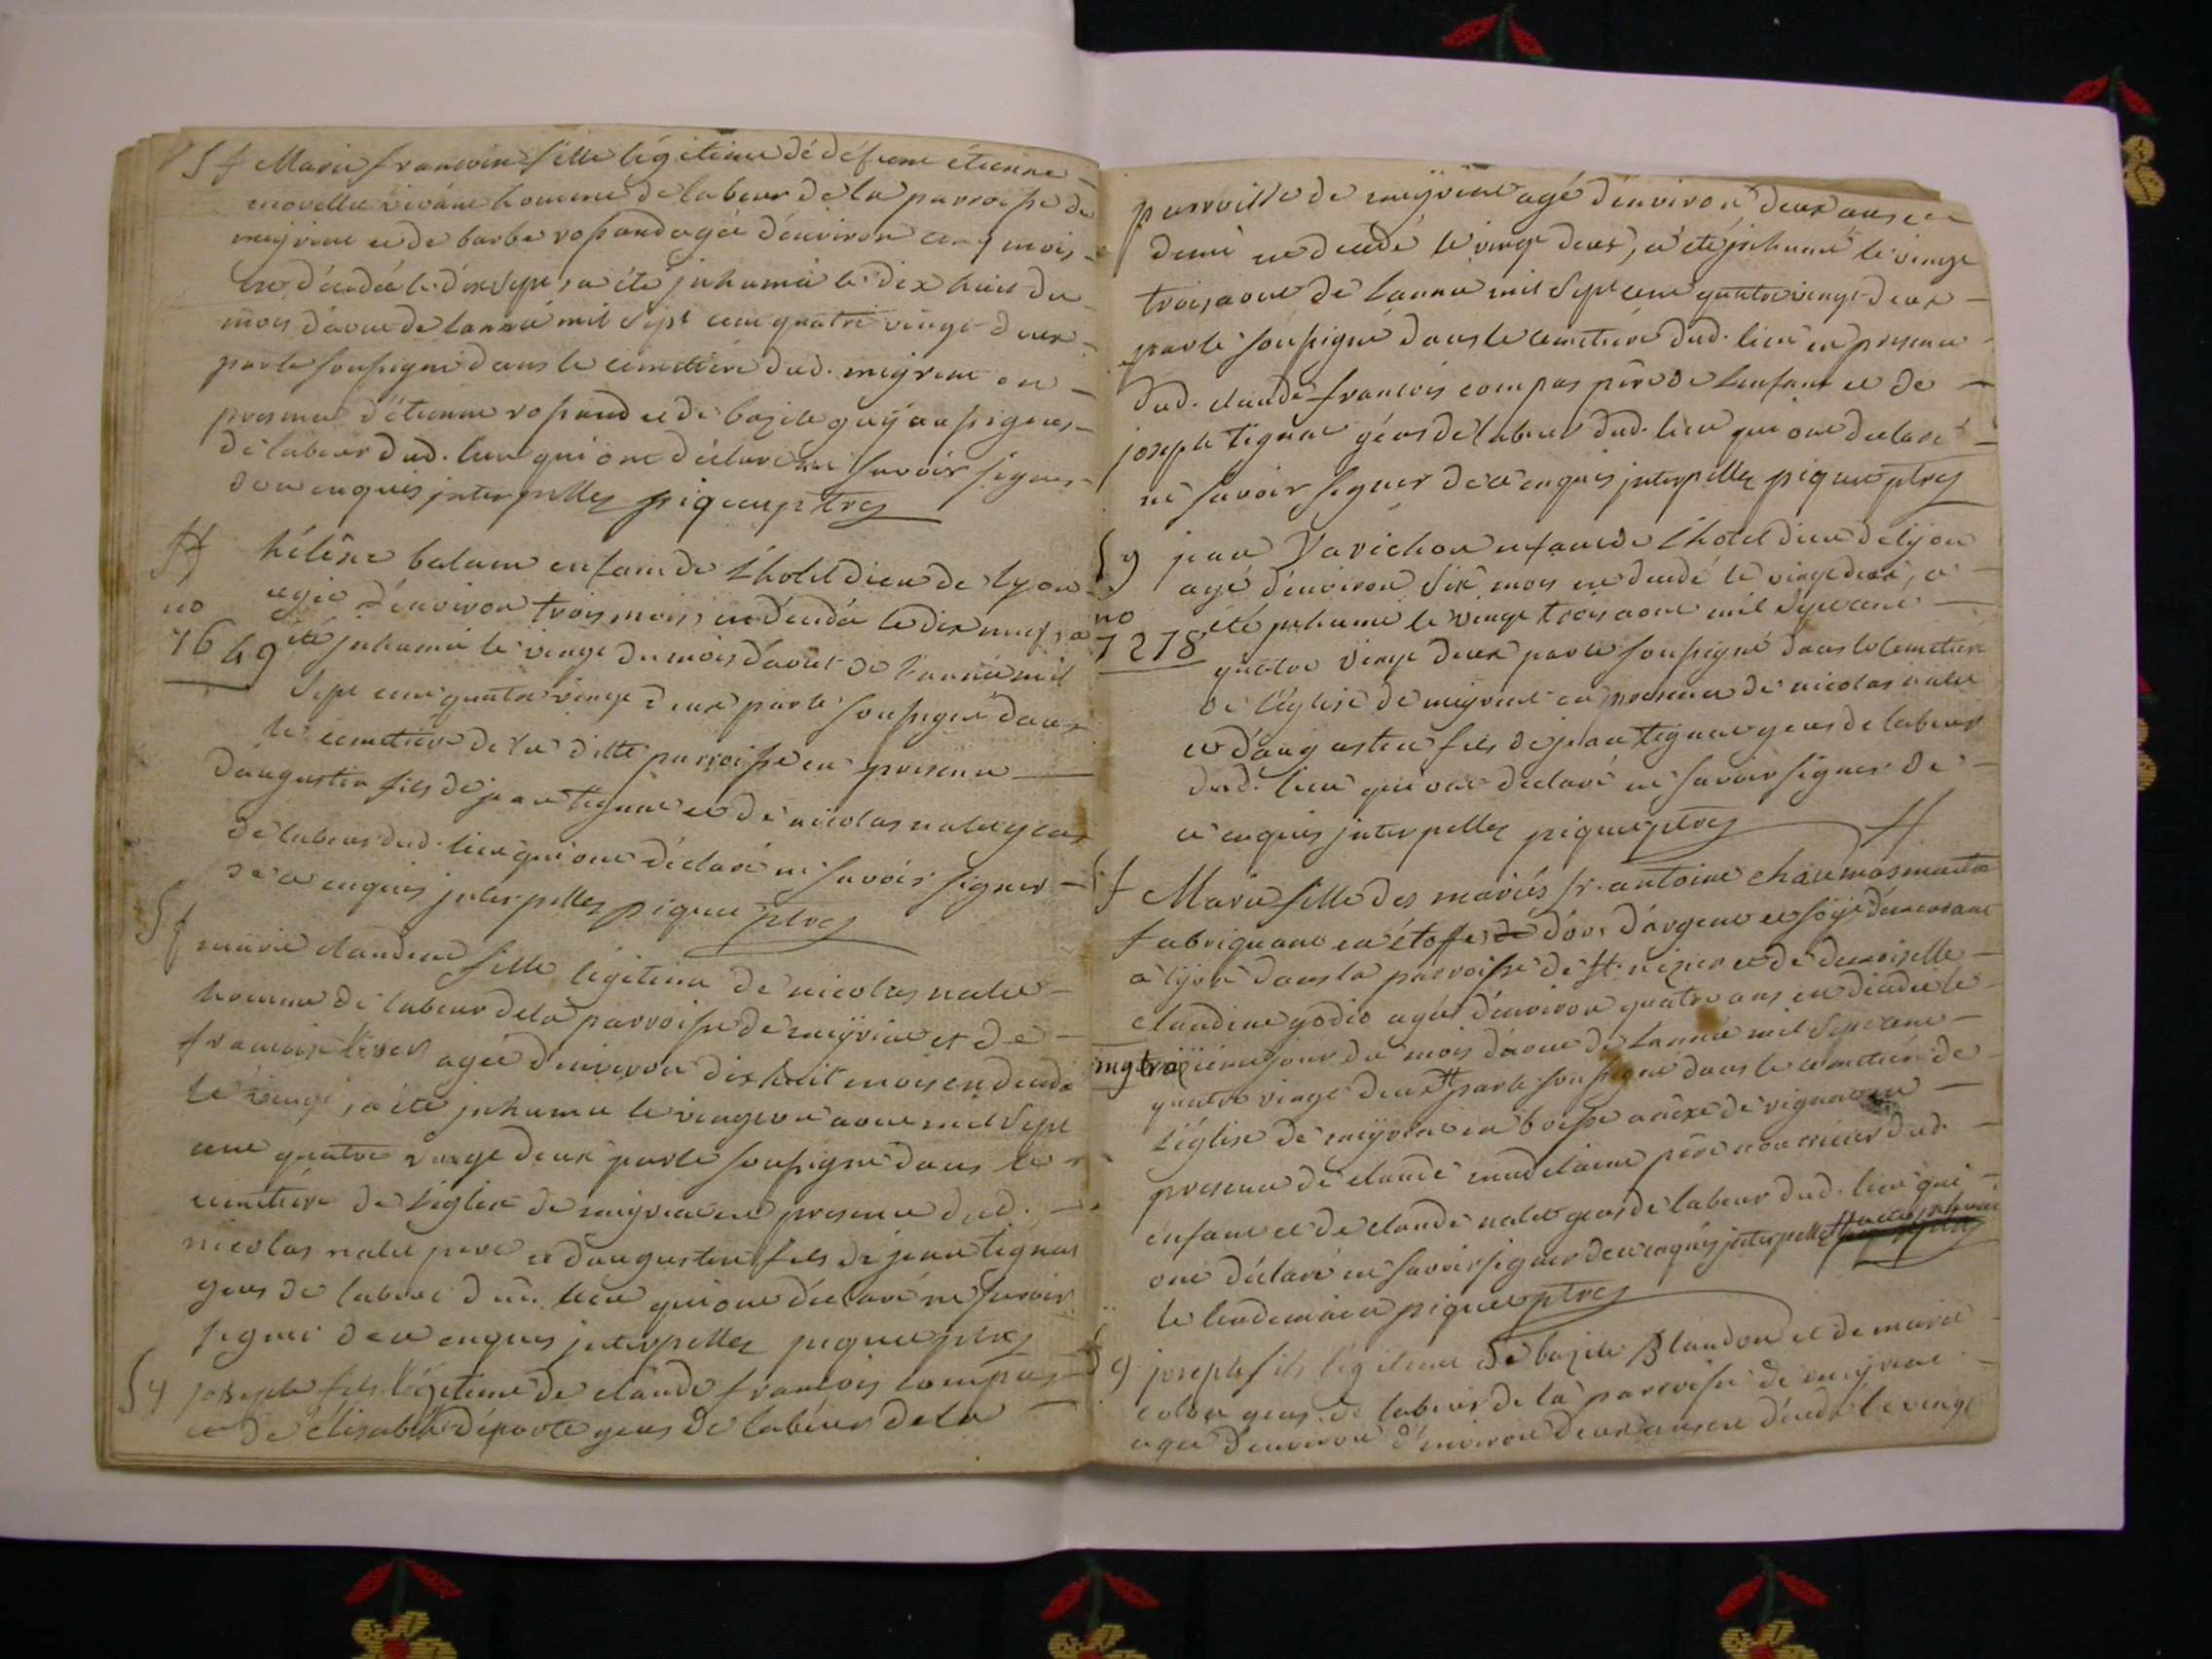 Sf Marie francoise fille légitime dé défunt étienne
movelle vivant homme de labeur de la parroisse de
meyrieu et de barbe ropaud agée d'environ cinq mois
est décedée le dix sept, a été inhumée le dix huit du
mois d'aout de l'année mil sept cent quatre vingt deux
par le soussigné dans le cimetiere dud. meyrieu en
presence d'étienne ropaud et de bazile guy gens
de labeur dud. lieu qui ont déclaré ne savoir signer
de ce enquis interpellez piqueu ptre
Sf hélêne balam enfant de l'hotel dieu de lyon
no agée d'environ trois mois, est décedée le dix neuf, a
1649 été inhumée le vingt du mois d'aout de l'année mil
sept cent quatre vingt deux par le soussigné dans
le cemetiere de la ditte parroisse en presence
d'augustin fils de jean tignat et de nicolas nalet gens
de labeur dud. lieu qui ont déclaré ne savoir signer
de ce enquis interpellez piqueu ptre
Sf marie claudine fille légitime de nicolas nalet
homme de labeur de la parroisse de meyrieu et de
francoise agée d'environ dix huit mois est decedée
le vingt, a été inhumée le vingt un aout mil sept
cent quatre vingt deux par le soussigné dans le
cemetiere de l'eglise de meyrieu en presence dud.
nicolas nalet pere et d'augustin fils de jean tignat
gens de labeur dud. lieu qui ont déclaré ne savoir
signer de ce enquis interpellez piqueu ptre
Sg joseph fils légitime de claude francois compas
et de élisabeth déporte gens de labeur de la
parroisse de meyrieu agé d'environ deux ans et
demi est decedé le vingt deux, a été inhumé le vingt
trois aout de l'année mil sept cent quatre vingt deux
par le soussigné dans le cemetiere dud. lieu en presence
dud. claude francois compas père de l'enfant et de
joseph tignat gens de labeur dud. lieu qui ont declaré
ne savoir signer de ce enquis interpellez piqueu ptre
Sg jean Varichon enfant de l'hotel dieu de lyon
agé d'environ six mois est decedé le vingt deux, a
no été inhumé le vingt trois aout mil sept cent
7278 quatre vingt deux par le soussigné dans le cemetiere
de l'église de meyrieu en presence de nicolas nalet
et d'augustin fils de jean tignat gens de labeur
dud. lieu qui ont declaré ne savoir signer de
ce enquis interpellez piqueu ptre
Sf Marie fille des mariés sr. antoine chaumas maitre
fabriquant en étoffes de d'or, d'argent et soye demeurant
a lyon dans la parroisse de st. nizier et de demoiselle
claudine godio agée d'environ quatre ans est décedée le
vingt troisième jour du mois d'aout de l'année mil sept cent
quatre vingt deux # par le soussigné dans le cemetiere de
l'église de meyrieu en boisse anexe de vignieu en
presence de claude madelaine père nourricier dud.
enfant et de claude nalet gens de labeur dud. lieu qui
ont déclaré ne savoir signer de ce enquis interpellez # a été inhumée
le lendemain piqueu ptre
Sg joseph fils légitime de bazile Blandon et de marie
colon gens de labeur de la parroisse de meyrieu
agé d'environ d'environ deux ans est décedé le vingt